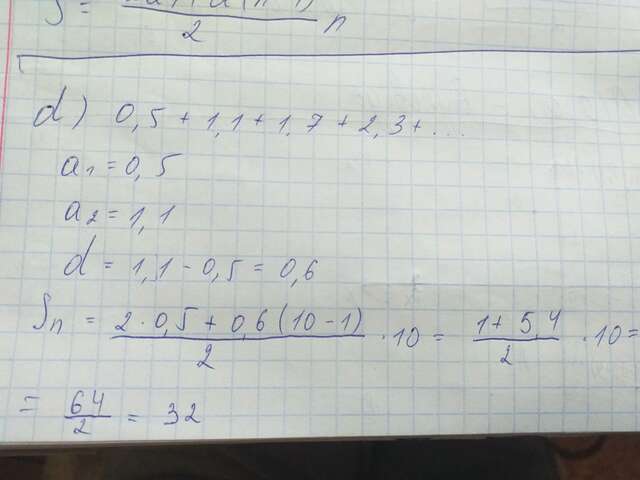 2
n
d) 0,5 + 1,1 + 1,7 + 2,3 + ...
a₁ = 0,5
a₂ = 1,1
d = 1,1 - 0,5 = 0,6
Sₙ = (2 · 0,5 + 0,6 (10 - 1))/2 · 10 = (1 + 5,4)/2 · 10 =
= 64/2 = 32